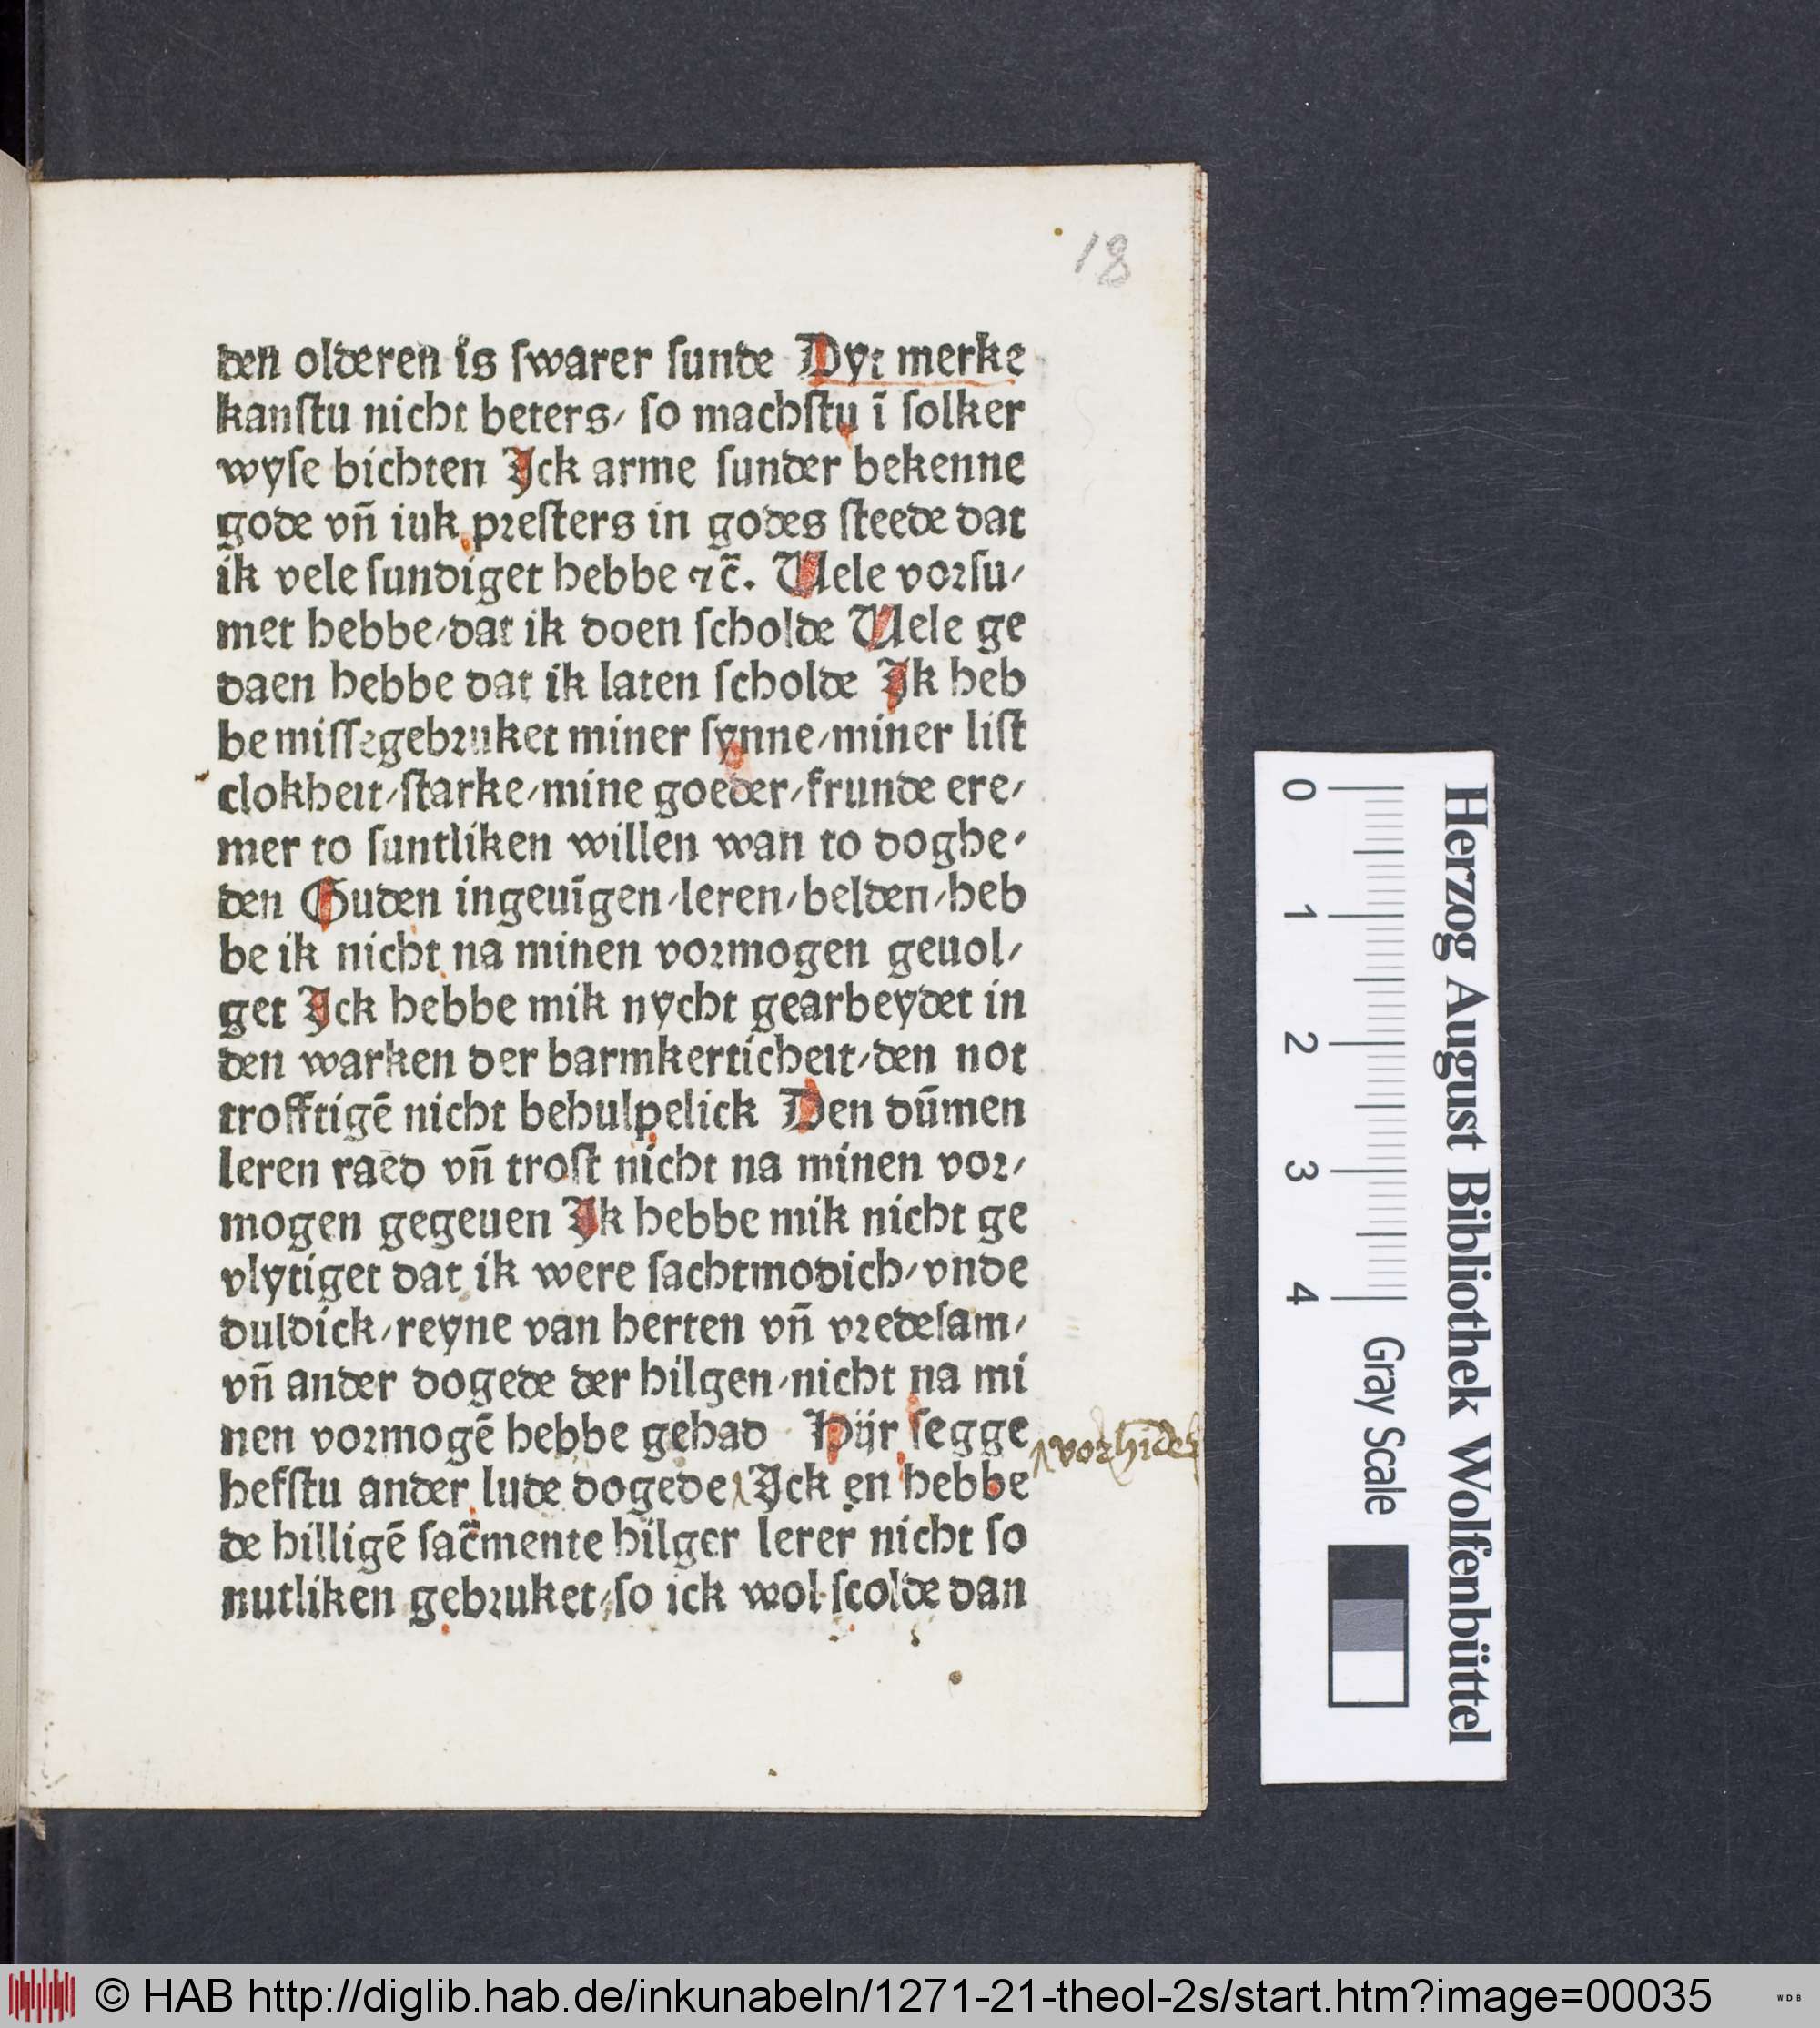 18
den olderen is ſwarer ſunde Dyt merke
kanſtu nicht beters/ ſo machſtu ī ſolker
wyſe bichten Ick arme ſunder bekenne
gode vñ iuk preſters in godes ſteede dat
ik vele ſundiget hebbe ⁊c̄. Uele vorſu/
met hebbe/dat ik doen ſcholde Uele ge
daen hebbe dat ik laten ſcholde Ik heb
be miſſegebruket miner ſynne/miner liſt
clokheit/ſtarke/mine goeder/frunde ere/
mer to ſuntliken willen wan to doghe/
den Guden ingeuīgen/leren/belden/heb
be ik nicht na minen vormogen geuol/
get Ick hebbe mik nycht gearbeydet in
den warken der barmkerticheit/den not
trofftigē nicht behulpelick Den dūmen
leren raed vñ troſt nicht na minen vor/
mogen gegeuen Ik hebbe mik nicht ge
vlytiget dat ik were ſachtmodich/vnde
duldick/reyne van herten vñ vredeſam/
vñ ander dogede der hilgen/nicht na mi
nen vormogē hebbe gehad Hijr ſegge
hefſtu ander lude dogede Ick en hebbe
vorhīdert
de hilligē ſac̄mente hilger lerer nicht ſo
nutliken gebruket/ſo ick wol ſcolde dan
0 1 2 3 4
Gray Scale
Herzog August Bibliothek Wolfenbüttel
© HAB http://diglib.hab.de/inkunabeln/1271-21-theol-2s/start.htm?image=00035
WDB